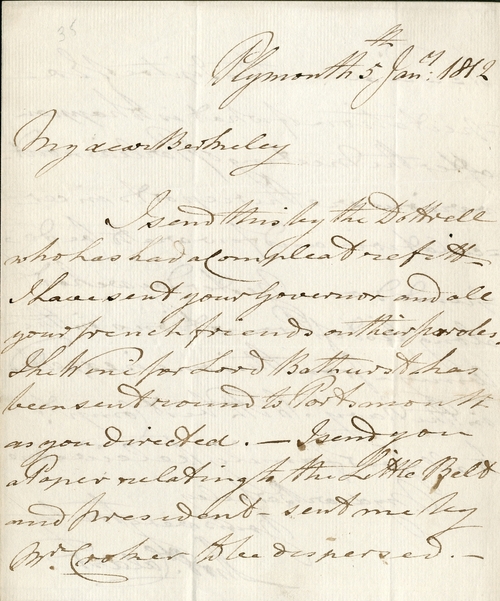 36
Plymouth 5th Jany: 1812
My dear Berkeley
I send this by the Dottrell
who has had a Compleat refitt -
I have sent your Governor and all
your french friends on their paroles.
The Wine for Lord Bathurst has
been sent round to Portsmouth
as you directed. - I send you
a Paper relating to the Little Belt
and President - sent me by
Mr. Croker to be dispersed. -